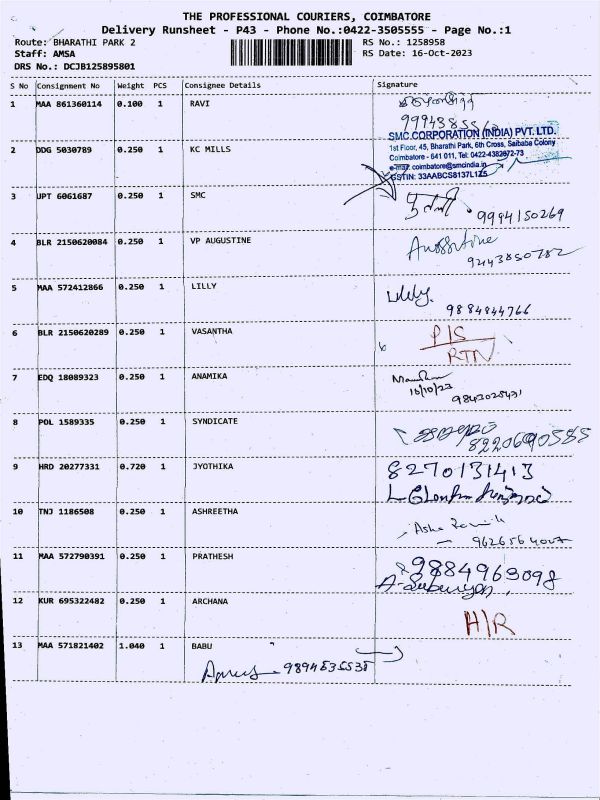 THE PROFESSIONAL COURIERS, COIMBATORE
Delivery Runsheet - P43 - Phone No.:0422-3505555 - Page No.:1
Route: BHARATHI PARK 2 RS No.: 1258958
Staff: AMSA RS Date: 16-Oct-2023
DRS No.: DCJB125895801
S No Consignment No Weight PCS Consignee Details Signature
1 MAA 861360114 0.100 1 RAVI
SMC CORPORATION (INDIA) PVT. LTD.
1st Floor, 45, Bharathi Park, 6th Cross, Saibaba Colony
2 DDG 5030789 0.250 1 KC MILLS Coimbatore - 641 011, Tel: 0422-4382872-73
e-mail: coimbatore@smcindia.in
GSTIN: 33AABCS8137L1Z5
3 JPT 6061687 0.250 1 SMC
9994150269
4 BLR 2150620084 0.250 1 VP AUGUSTINE Augustine
9443850782
5 MAA 572412866 0.250 1 LILLY Lilly.
9884844766
6 BLR 2150620289 0.250 1 VASANTHA P/S
RTN
7 EDQ 18089323 0.250 1 ANAMIKA
16/10/23
8 POL 1589335 0.250 1 SYNDICATE
8220690585
9 HRD 20277331 0.720 1 JYOTHIKA 8270131413
10 TNJ 1186508 0.250 1 ASHREETHA
11 MAA 572790391 0.250 1 PRATHESH 9884963098
12 KUR 695322482 0.250 1 ARCHANA H/R
13 MAA 571821402 1.040 1 BABU